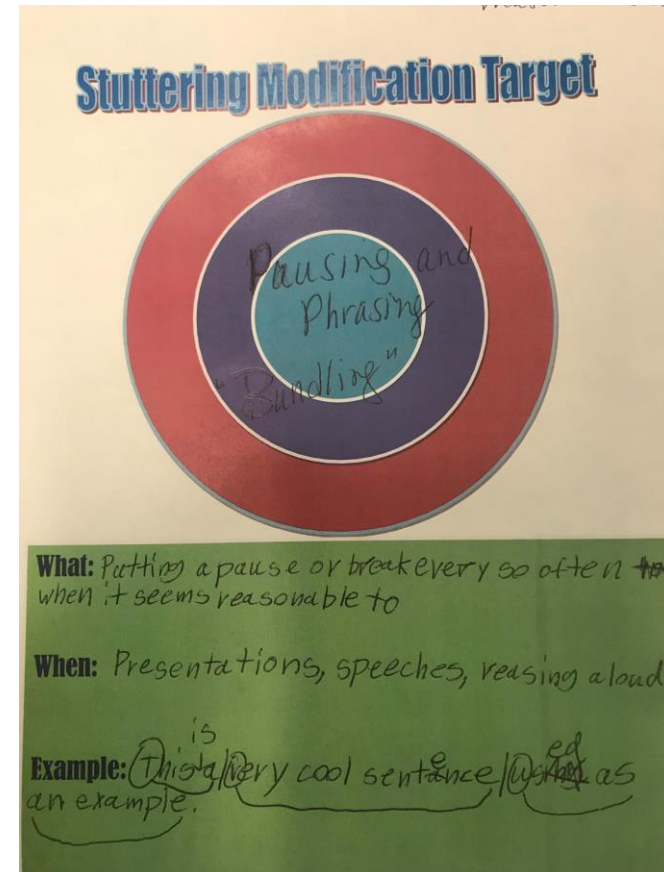 Stuttering Modification Target
Pausing and
Phrasing
"Bundling"
What: Putting a pause or break every so often
when it seems reasonable to
When: Presentations, speeches, reasing aloud
is
Example: This a/very cool sentence/used as
an example.